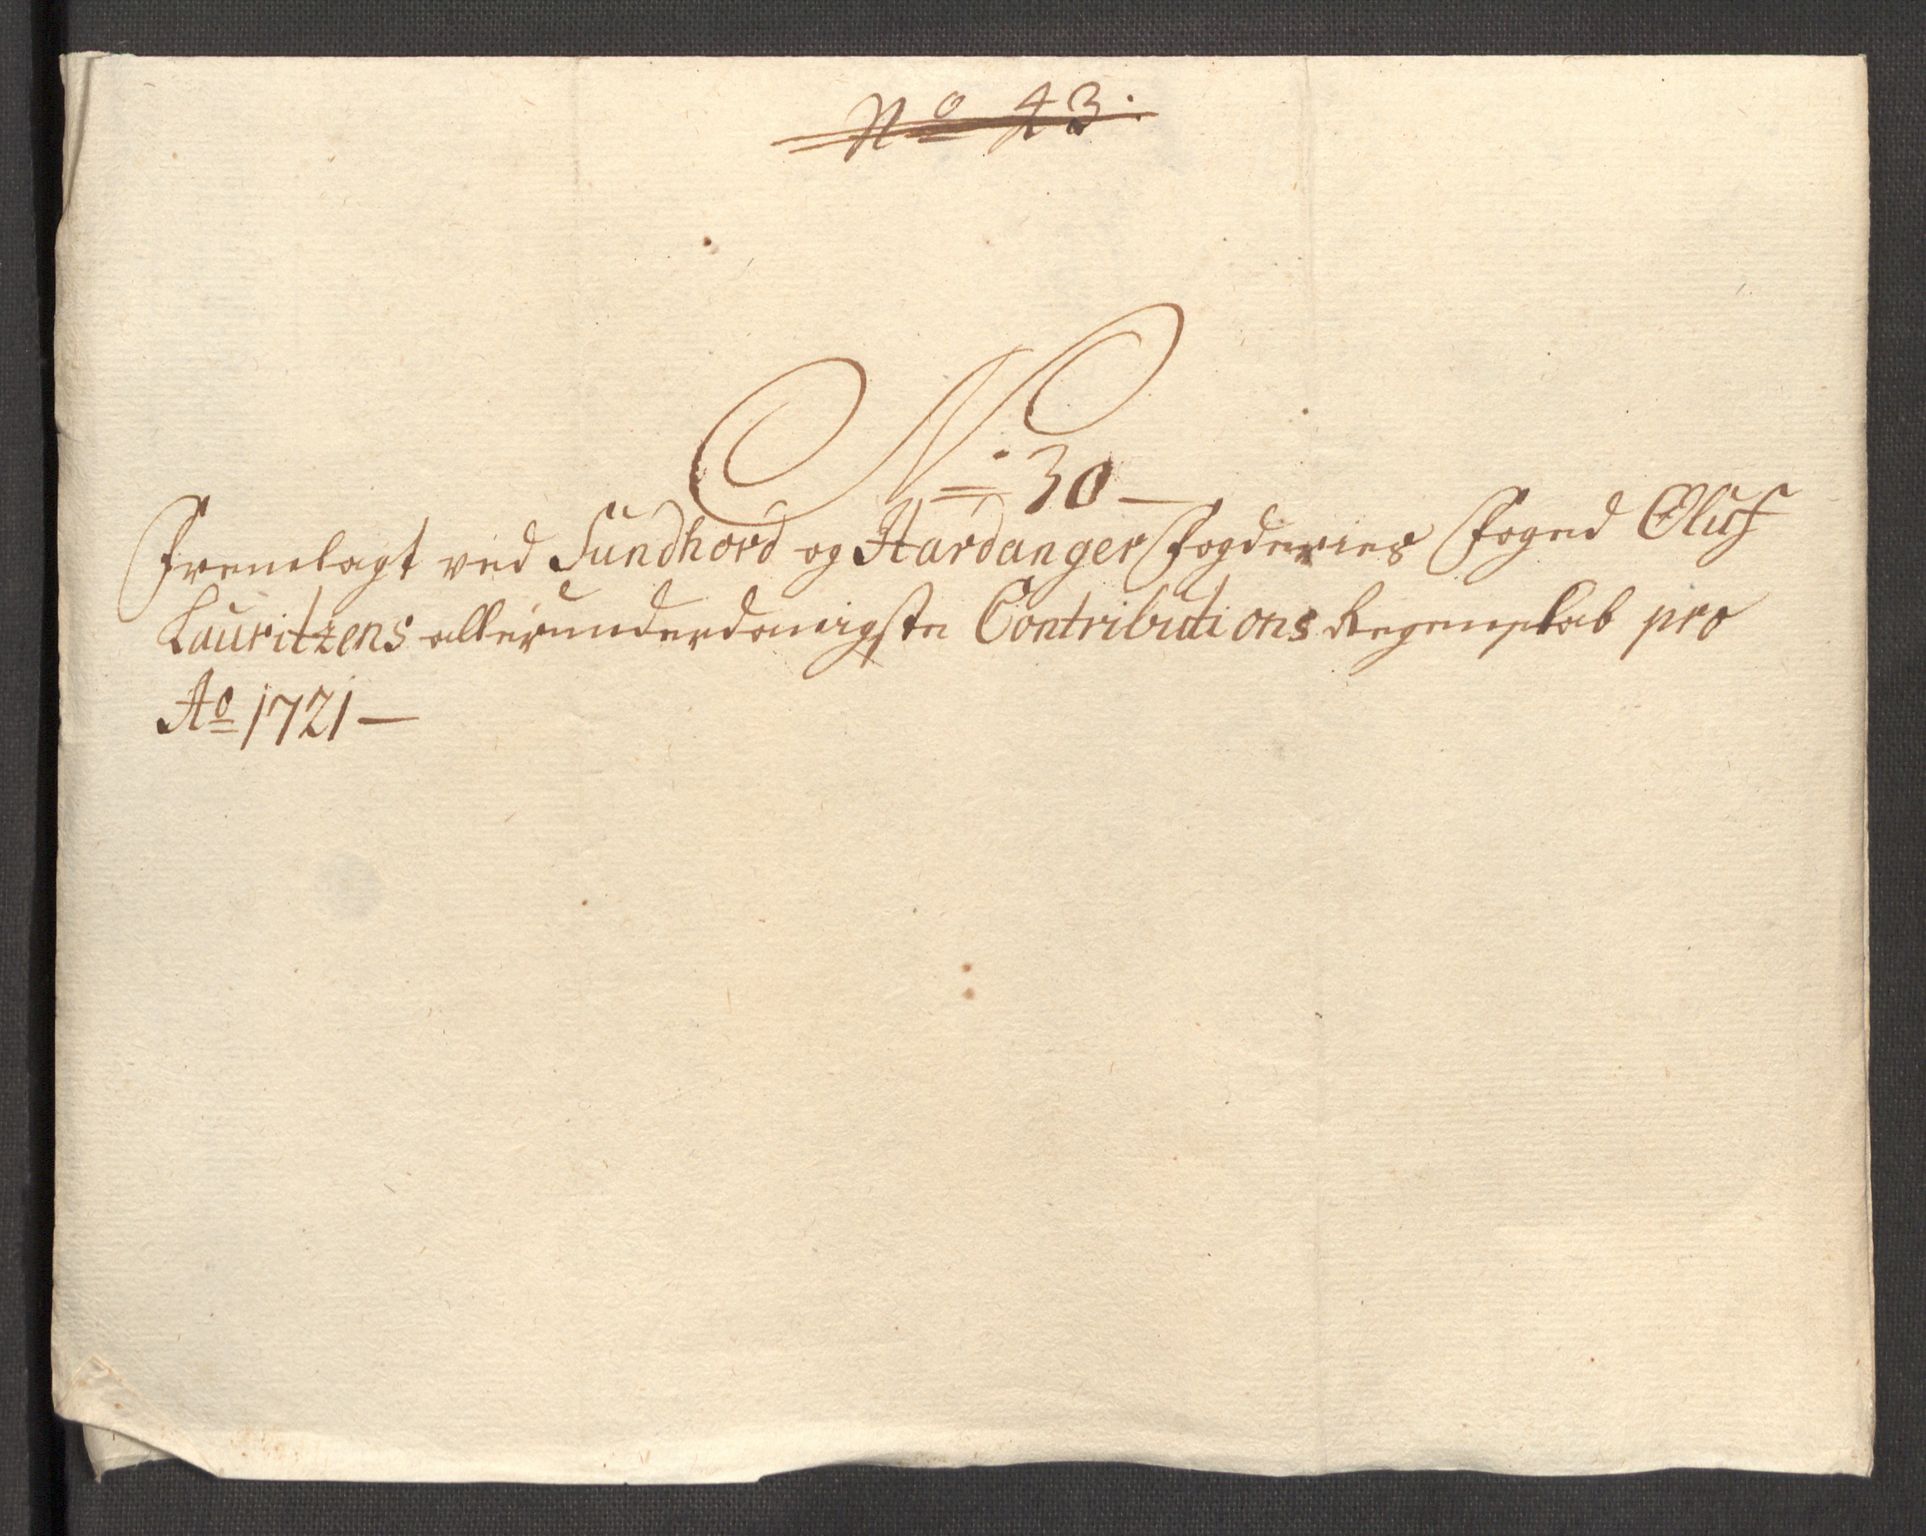 No 43.
No. 30
Fremlagt ved Sundhord og Hardanger Fogderies Foged Oluf
Lauritzens allerunderdanigste Contributions Regenskab pro
Ao 1721